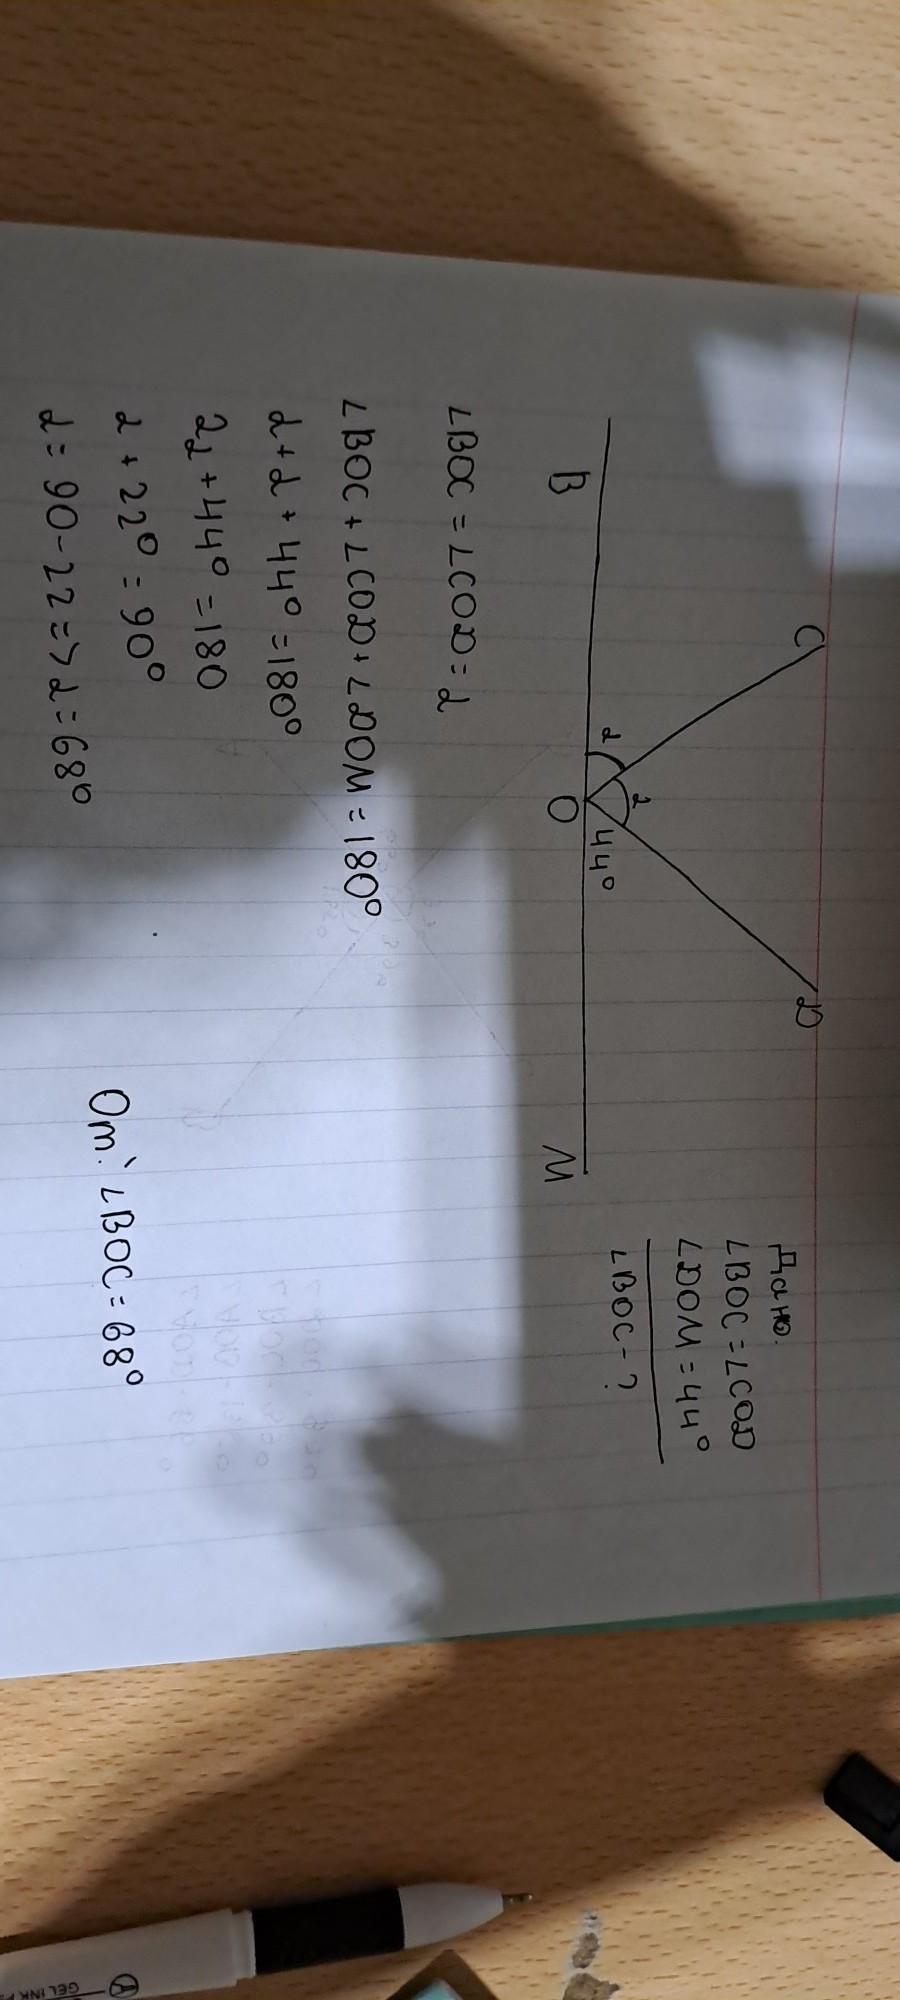 C
D
Дано.
∠BOC = ∠COD
∠DOM = 44°
∠BOC - ?
α
α
44°
B
O
M
∠BOC = ∠COD = α
∠BOC + ∠COD + ∠DOM = 180°
α + α + 44° = 180°
2α + 44° = 180
α + 22° = 90°
α = 90 - 22 => α = 68°
От. ∠BOC = 68°
GEL INK